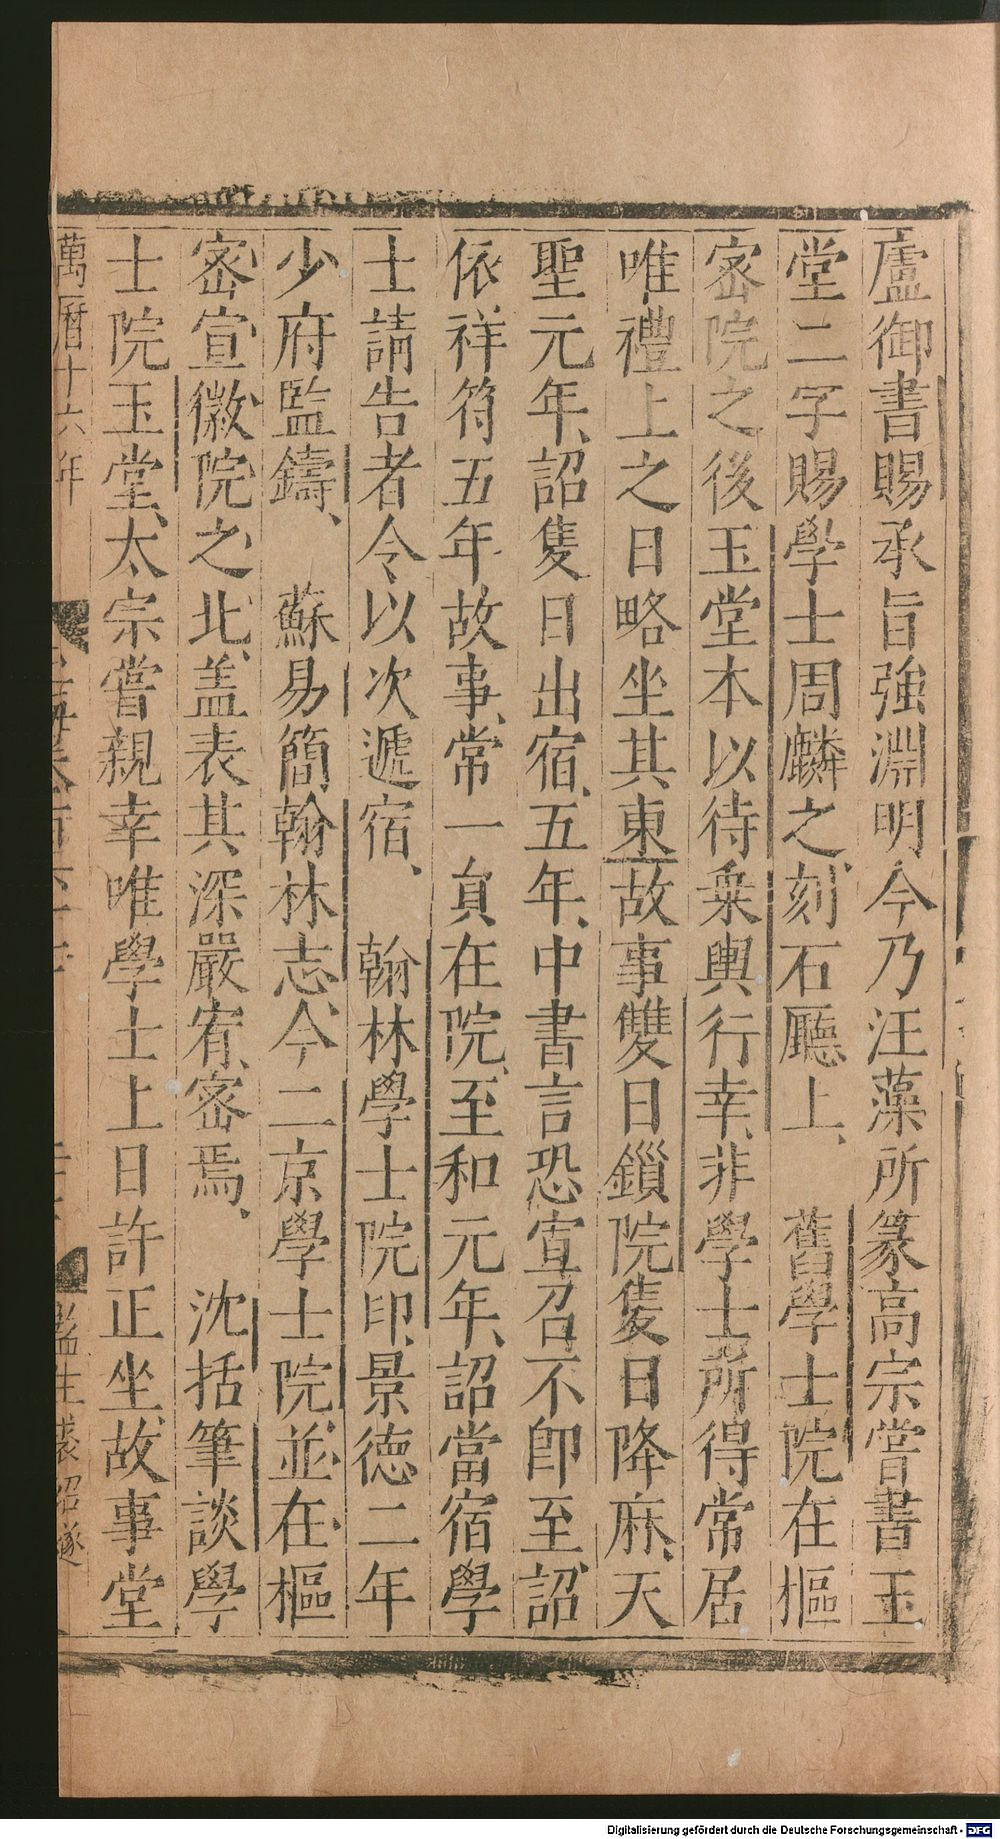 廬御書賜承旨強淵明今乃汪藻所篆高宗嘗書玉
堂二字賜學士周麟之刻石廳上、　舊學士院在樞
密院之後玉堂本以待乗輿行幸、非學士所得常居
唯禮上之日略坐其東故事雙日鎻院隻日降麻、天
聖元年、詔隻日出宿、五年、中書言恐宣召不即至、詔
依祥符五年故事、常一員在院、至和元年、詔當宿學
士請告者令以次遞宿、　翰林學士院印、景德二年
少府監鑄、　蘇易簡翰林志、今二京學士院、並在樞
密宣徽院之北、盖表其深嚴宥密焉、　沈括筆談學
士院玉堂、太宗嘗親幸唯學士上日許正坐、故事堂
萬曆十六年
監生裘紹遂
Digitalisierung gefördert durch die Deutsche Forschungsgemeinschaft - DFG